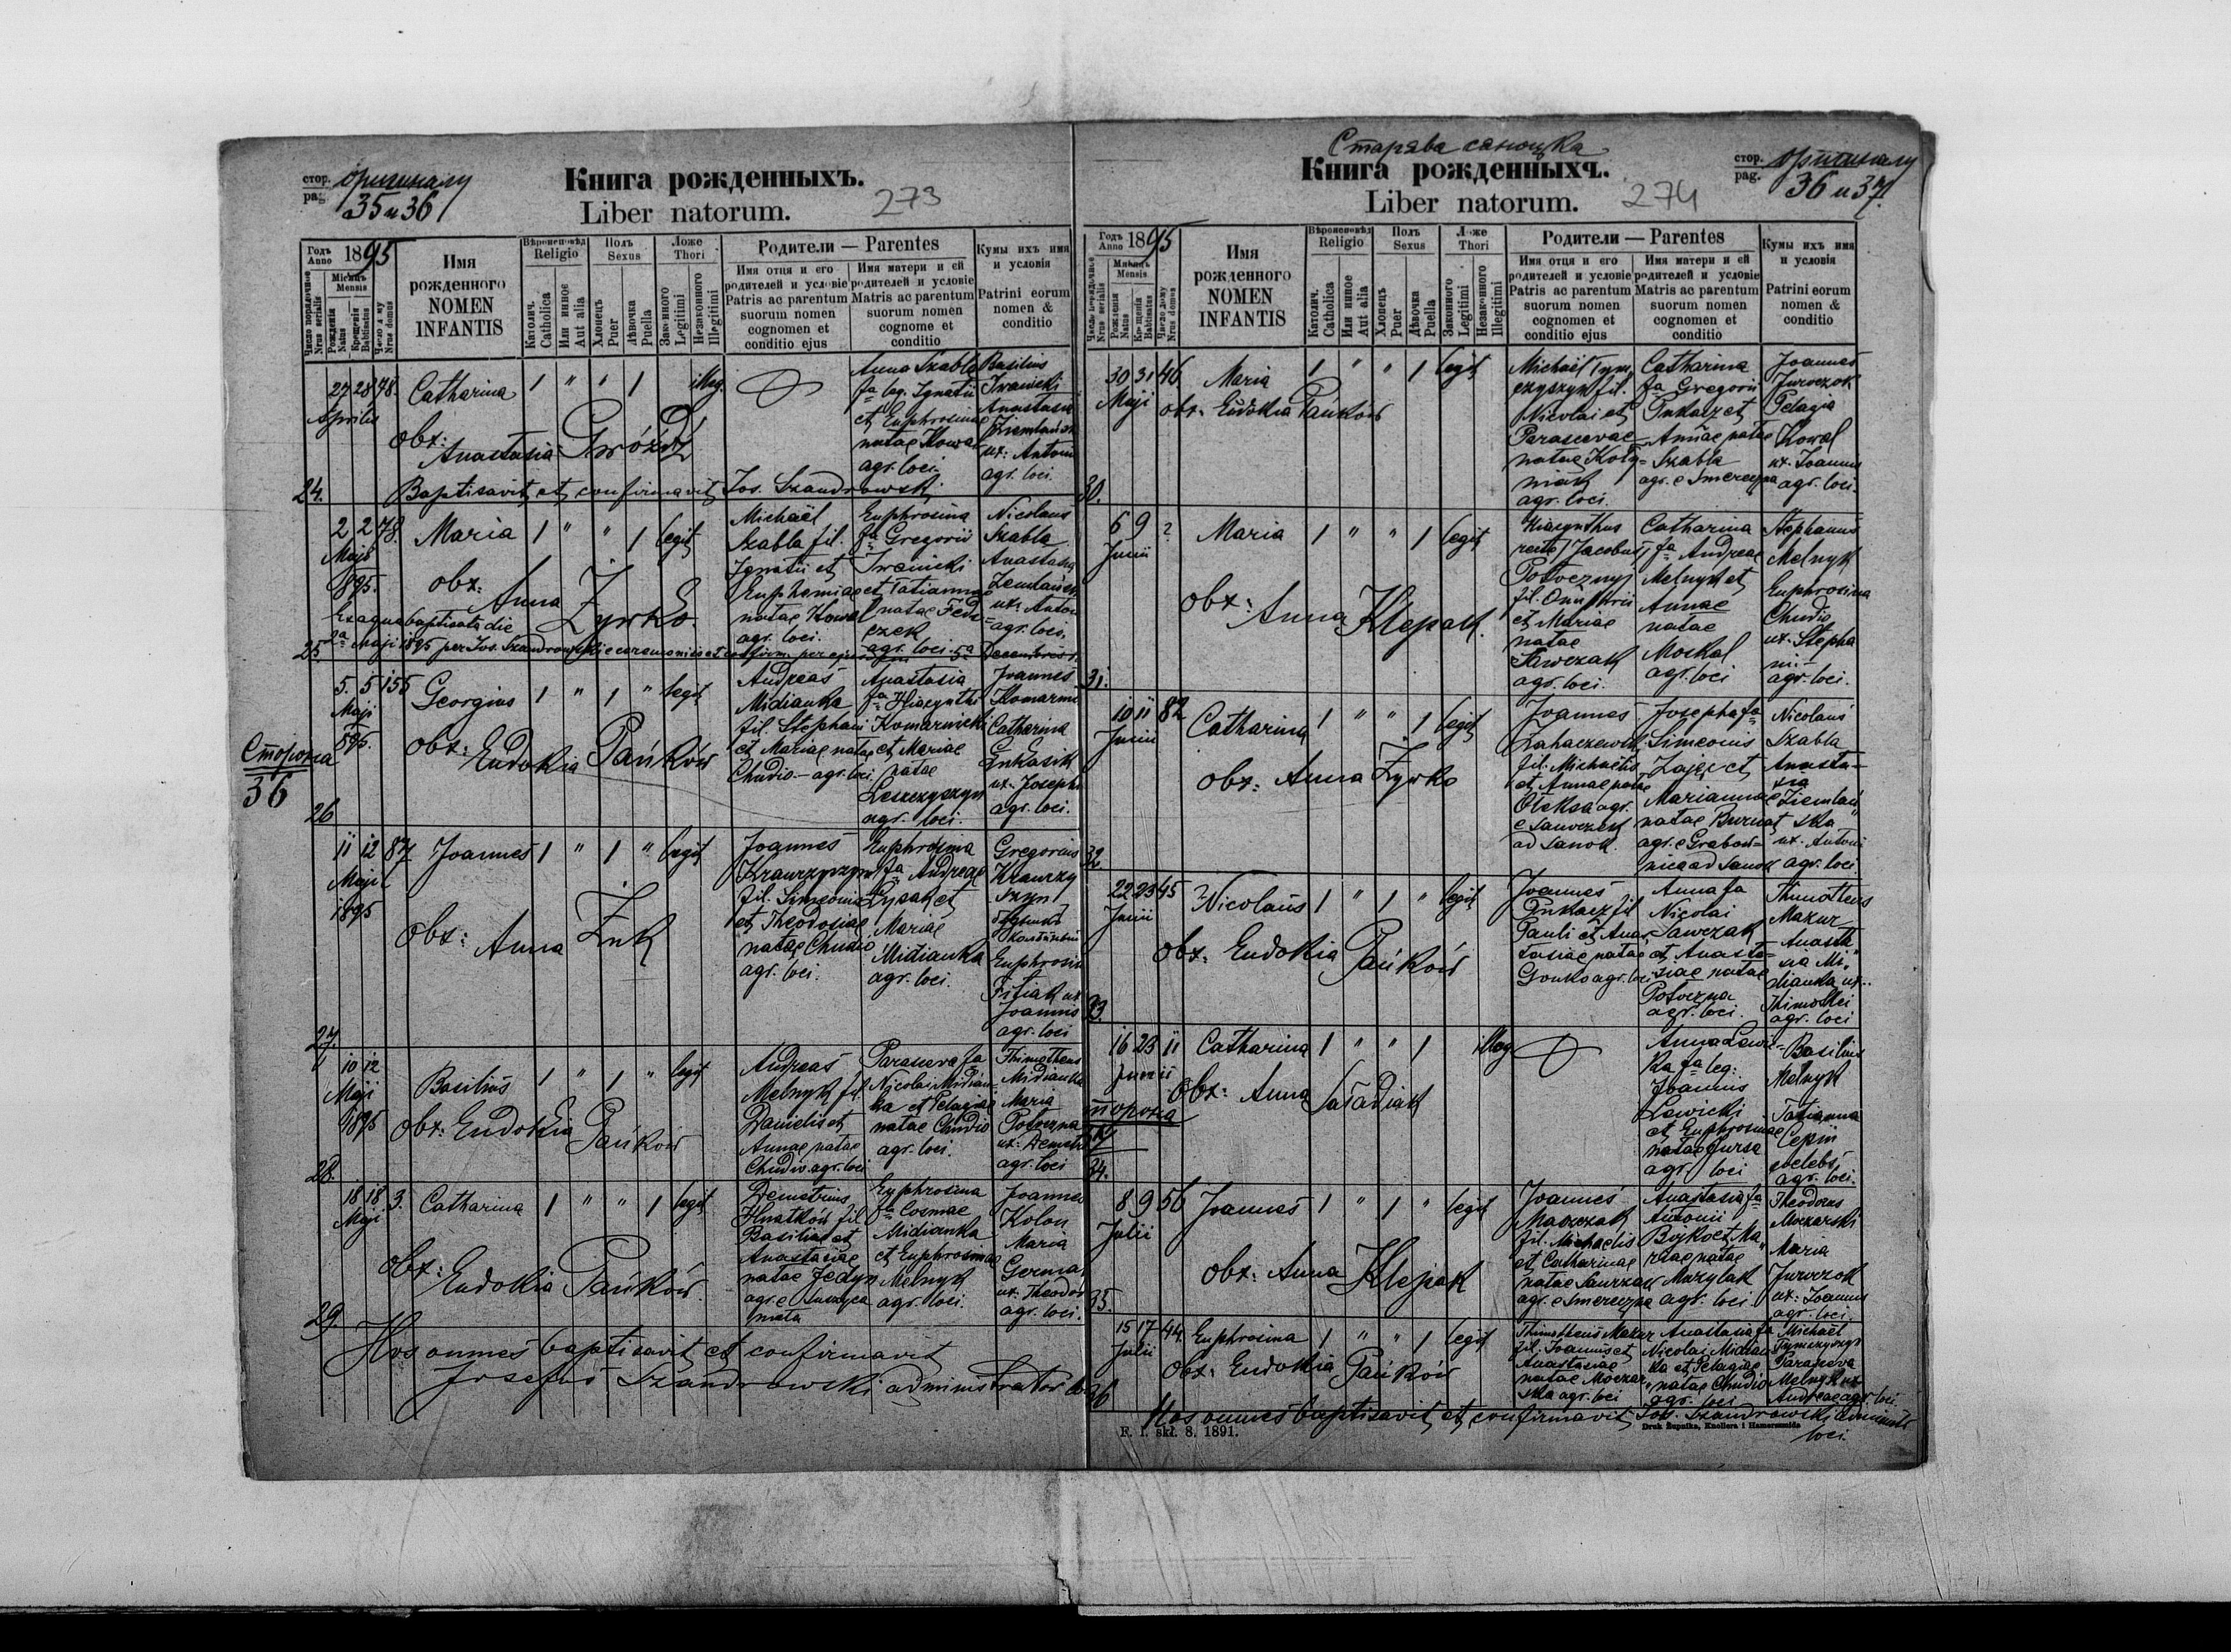 стор. оригиналу
pag. 35 и 36
Книга рожденныхъ.
Liber natorum.
273
Годъ Anno 1895
Мѣсяць Mensis
Число порядочное Nrus serialis
Рожденія Natus
Крещенія Babtisatus
Число дому Nrus domus
Имя
рожденного
NOMEN
INFANTIS
Вѣроисповѣд
Religio
Католич. Catholica
Или инное Aut alia
Полъ
Sexus
Хлопецъ Puer
Дѣвочка Puella
Ложе
Thori
Законного Legitimi
Незаконного Illegitimi
Родители — Parentes
Имя отця и его
родителей и условіе
Patris ac parentum
suorum nomen
cognomen et
conditio ejus
Имя матери и ей
родителей и условіе
Matris ac parentum
suorum nomen
cognome et
conditio
Кумы ихъ имя
и условія
Patrini eorum
nomen &
conditio
24. 27 28 78. Aprilis
Catharina 1 " " 1 illeg.
obx: Anastasia Gwóźdź
Anna Szabla
fa leg. Ignatii
et Euphrosinae
natae Kowal
agr. loci.
Basilius
Iwanicki
Anastasia
Ziemlańska
ux: Antonii
agr. loci.
Baptisavit et confirmavit Jos. Szandrowski
25. 2 2 78. Maji 1895.
Maria 1 " " 1 legit
obx: Anna Żyrko.
Michaël
Szabla fil.
Ignatii et
Euphemiae
natae Kowal
agr. loci.
Euphrosina
fa Gregorii
Iwanicki
et Tatianna
natae Fed=
czek
agr. loci
Nicolaus
Szabla
Anastasia
Zemlańska
ux: Anton
agr. loci.
Ex aqua baptisata die
2a Maji 1895 per Jos. Szandrowski
26 5. 5 155 Maji 895.
Georgius 1 " 1 " legit
obx: Eudokia Pańków
Andreas
Midianka
fil. Stephani
et Mariae natae
Chudio - agr. loci
Anastasia
fa Hiacynthi
Komarnicki
et Mariae
natae
Leszczyszyn
agr. loci.
Joannes
Komarnic
Catharina
Łukasik
ux. Josephi
agr. loci.
Сторона
36
27. 11 12 87 Maji 1895
Joannes 1 " 1 " legit
Obx: Anna Żuk
Joannes
Krawczyszyn
fil. Simeonis
et Theodosiae
natae Chudio
agr. loci.
Euphrosina
fa Andreae
Łysak et
Mariae
Midianka
agr. loci.
Gregorius
Krawczy
szyn
Euphrosina
Fitiak ux
Joannis
agr. loci
28. 10 12 Maji 1895
Basilius 1 " 1 " legit
Obx: Eudokia Pańków
Andreas
Melnyk fil.
Danielis et
Annae natae
Chudio agr. loci
Parasceva fa
Nicolai Midian=
ka et Pelagiae
natae Chudio
agr. loci.
Thimotheus
Midianka
Maria
Potoczna
ux: Demetr
agr. loci
29 18 18 3. Maji
Catharina 1 " " 1 legit
Obx: Eudokia Pańków.
Demetrius
Hnatków fil
Basilii et
Anastasiae
natae Fedyn
agr. e
Euphrosina
fa Cosmae
Midianka
et Euphrosinae
Melnyk
agr. loci.
Joannes
Kolon
Maria
Gorma
ux. Theodor
agr. loci.
Hos omnes baptisavit et confirmavit
Josefus Szandrowski administrator loci
Старява сяноцка
Книга рожденныхч.
Liber natorum.
274
стор. оригиналу
pag. 36 и 37.
Годъ Anno 1895
Мѣсяць Mensis
Число порядочное Nrus serialis
Рожденія Natus
Крещенія Babtisatus
Число дому Nrus domus
Имя
рожденного
NOMEN
INFANTIS
Вѣроисповѣд
Religio
Католич. Catholica
Или инное Aut alia
Полъ
Sexus
Хлопецъ Puer
Дѣвочка Puella
Ложе
Thori
Законного Legitimi
Незаконного Illegitimi
Родители — Parentes
Имя отця и его
родителей и условіе
Patris ac parentum
suorum nomen
cognomen et
conditio ejus
Имя матери и ей
родителей и условіе
Matris ac parentum
suorum nomen
cognomen et
conditio
Кумы ихъ имя
и условія
Patrini eorum
nomen &
conditio
30. 30 31 46 Maji
Maria 1 " " 1 legit
obx. Eudokia Pańków
Michaël Tym
czyszyn fil.
Nicolai et
Parascevae
natae Koty=
niak
agr. loci.
Catharina
fa Gregorii
Pukacz et
Annae natae
Szabla
agr. e Smereczna
Joannes
Juroczok
Pelagia
Kowal
ux. Joannis
agr. loci.
31. 6 9 ? Junii
Maria 1 " " 1 legit
obx: Anna Klepak.
Hiacynthus
recte Jacobus
Potoczny
fil. Onuphrii
et Mariae
natae
Sawczak
agr. loci.
Catharina
fa Andreae
Melnyk et
Annae
natae
Moskal
agr. loci
Stephanus
Melnyk
Euphrosina
Chudio
ux. Stepha
ni.
agr. loci.
32 10 11 82 Junii
Catharina 1 " " 1 legit
Obx: Anna Żyrko
Joannes
Zahaczewski
fil. Michaelis
et Annae natae
Oleksa agr.
e Sanoczek
ad Sanok.
Josepha fa
Simeonis
Zając et
Mariannae
natae Burnat
agr. e Grabow=
nica ad Sanok
Nicolaus
Szabla
Anasta=
sia
Ziemlań
ska
ux. Antoni
agr. loci
33. 22 23 45 Junii
Nicolaus 1 " 1 " legit
Obx. Eudokia Pańków
Joannes
Pukacz fil
Pauli et Anas
tasiae natae
Gonko agr. loci
Anna fa
Nicolai
Sawczak
et Anasta=
siae natae
Potoczna
agr. loci.
Thimotheus
Mazur
Anasta
sia Mi=
dianka ux.
Thimothei
agr. loci
34. 16 23 11 Junii
Catharina 1 " " 1 illeg
Obx: Anna Saładiak
Anna Lewic=
ka fa leg:
Joannis
Lewicki
et Euphrosinae
natae Hursa
agr. loci
Basilius
Melnyk
Tatianna
Cepin
coelebs
agr. loci.
35. 8 9 56 Julii
Joannes 1 " 1 " legit
Obx: Anna Klepak
Joannes
Maczczak
fil. Michaelis
et Catharinae
natae Sawczak
agr. e Smereczna
Anastasia fa
Antonii
Bojko et Ma
riae natae
Mazylak
agr. loci
Theodorus
Moczarski
Maria
Juroczok
ux: Joannis
agr. loci.
36 15 17 44. Julii
Euphrosina 1 " " 1 legit
Obx: Eudokia Pańków
Thimotheus Mazur
fil. Joannis et
Anastasiae
natae Moczar
ska agr. loci
Anastasia fa
Nicolai Midian
ka et Pelagiae
natae Chudio
agr. loci
Michaël
Tymczyszyn
Parasceva
Melnyk ux
Andreae agr. loci
Hos omnes baptisavit et confirmavit Jos. Szandrowski administr
loci.
F. I. skł. 8. 1891.
Druk Żupnika, Knollera i Hamerszmida